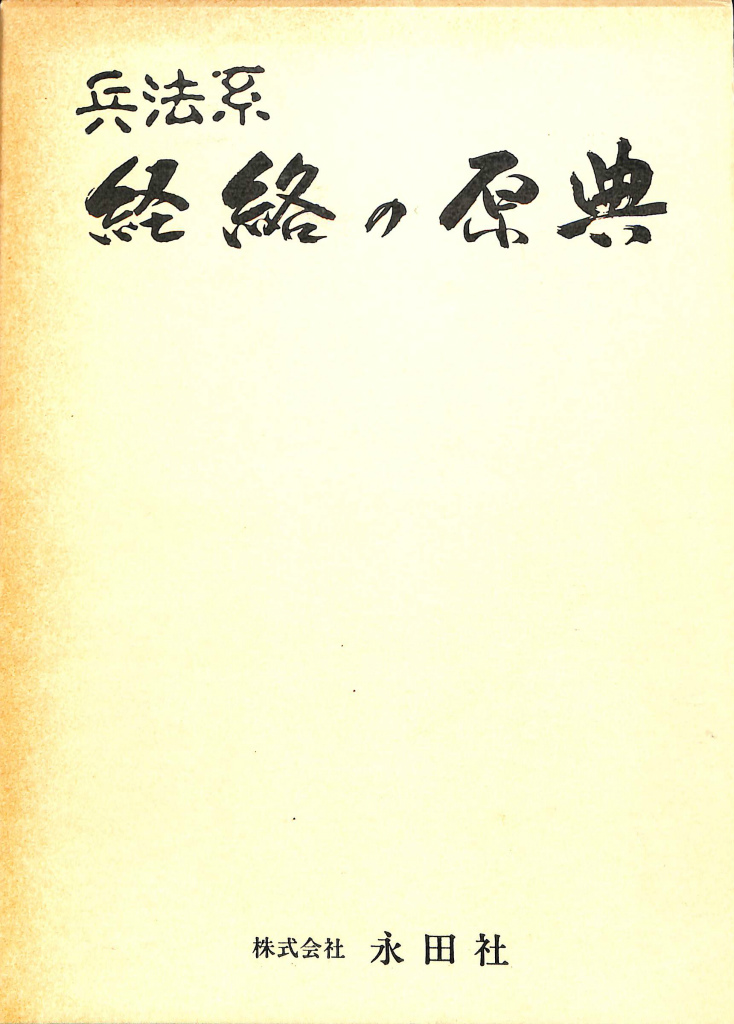 兵法系
経絡の原典
株式会社 永田社